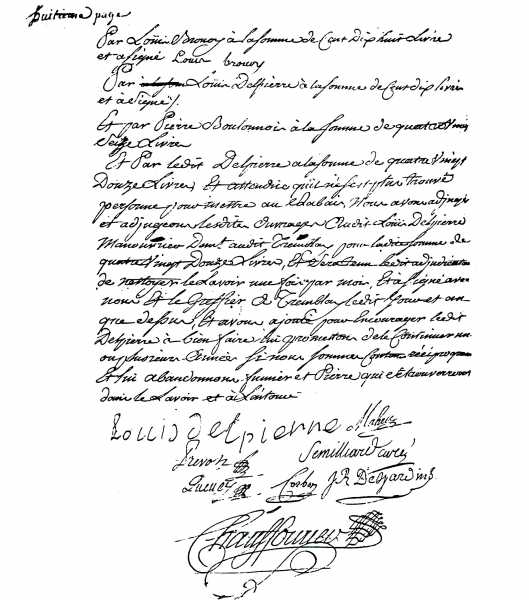 huitieme page
Par Loüis Brouoy à la somme de Cent dix huit Livre
et a signé Louis brouoy
Par Loüis Delpierre à la somme de Cent dix livres
et à Signé /.
Et par Pierre Boulonnois à la somme de quatre Vingt
Seize Livre
Et Par ledit Delpierre a la somme de quatre Vingt
Douze Livres Et attendu qu'il ne s'est plus trouvé
personne pour mettre au Rabais, Nous avons adjugés
et adjugeons lesdits Ouvrages Audit Loüis Delpierre
Manouvrier Dmt audit Tremblay pour laditte somme de
quatre Vingt Douze Livres, Et Sera tenu ledit adjudicataire
de nettoyer le Lavoir une fois par mois, Et a Signé avec
nous Et le Greffier de Tremblay ledit Jour et an
que dessus, Et avons ajouté pour Encourager ledit
Delpierre à bien faire lui promettons de le Continuer un
ou plusieurs Année si nous sommes Content réciproque
Et lui abandonnons fumier et Pierre qui se trouverront
dans le Lavoir et à L'entour
Louis delpierre
Prevost Semilliard curé
J R Desjardins
Chauffourier